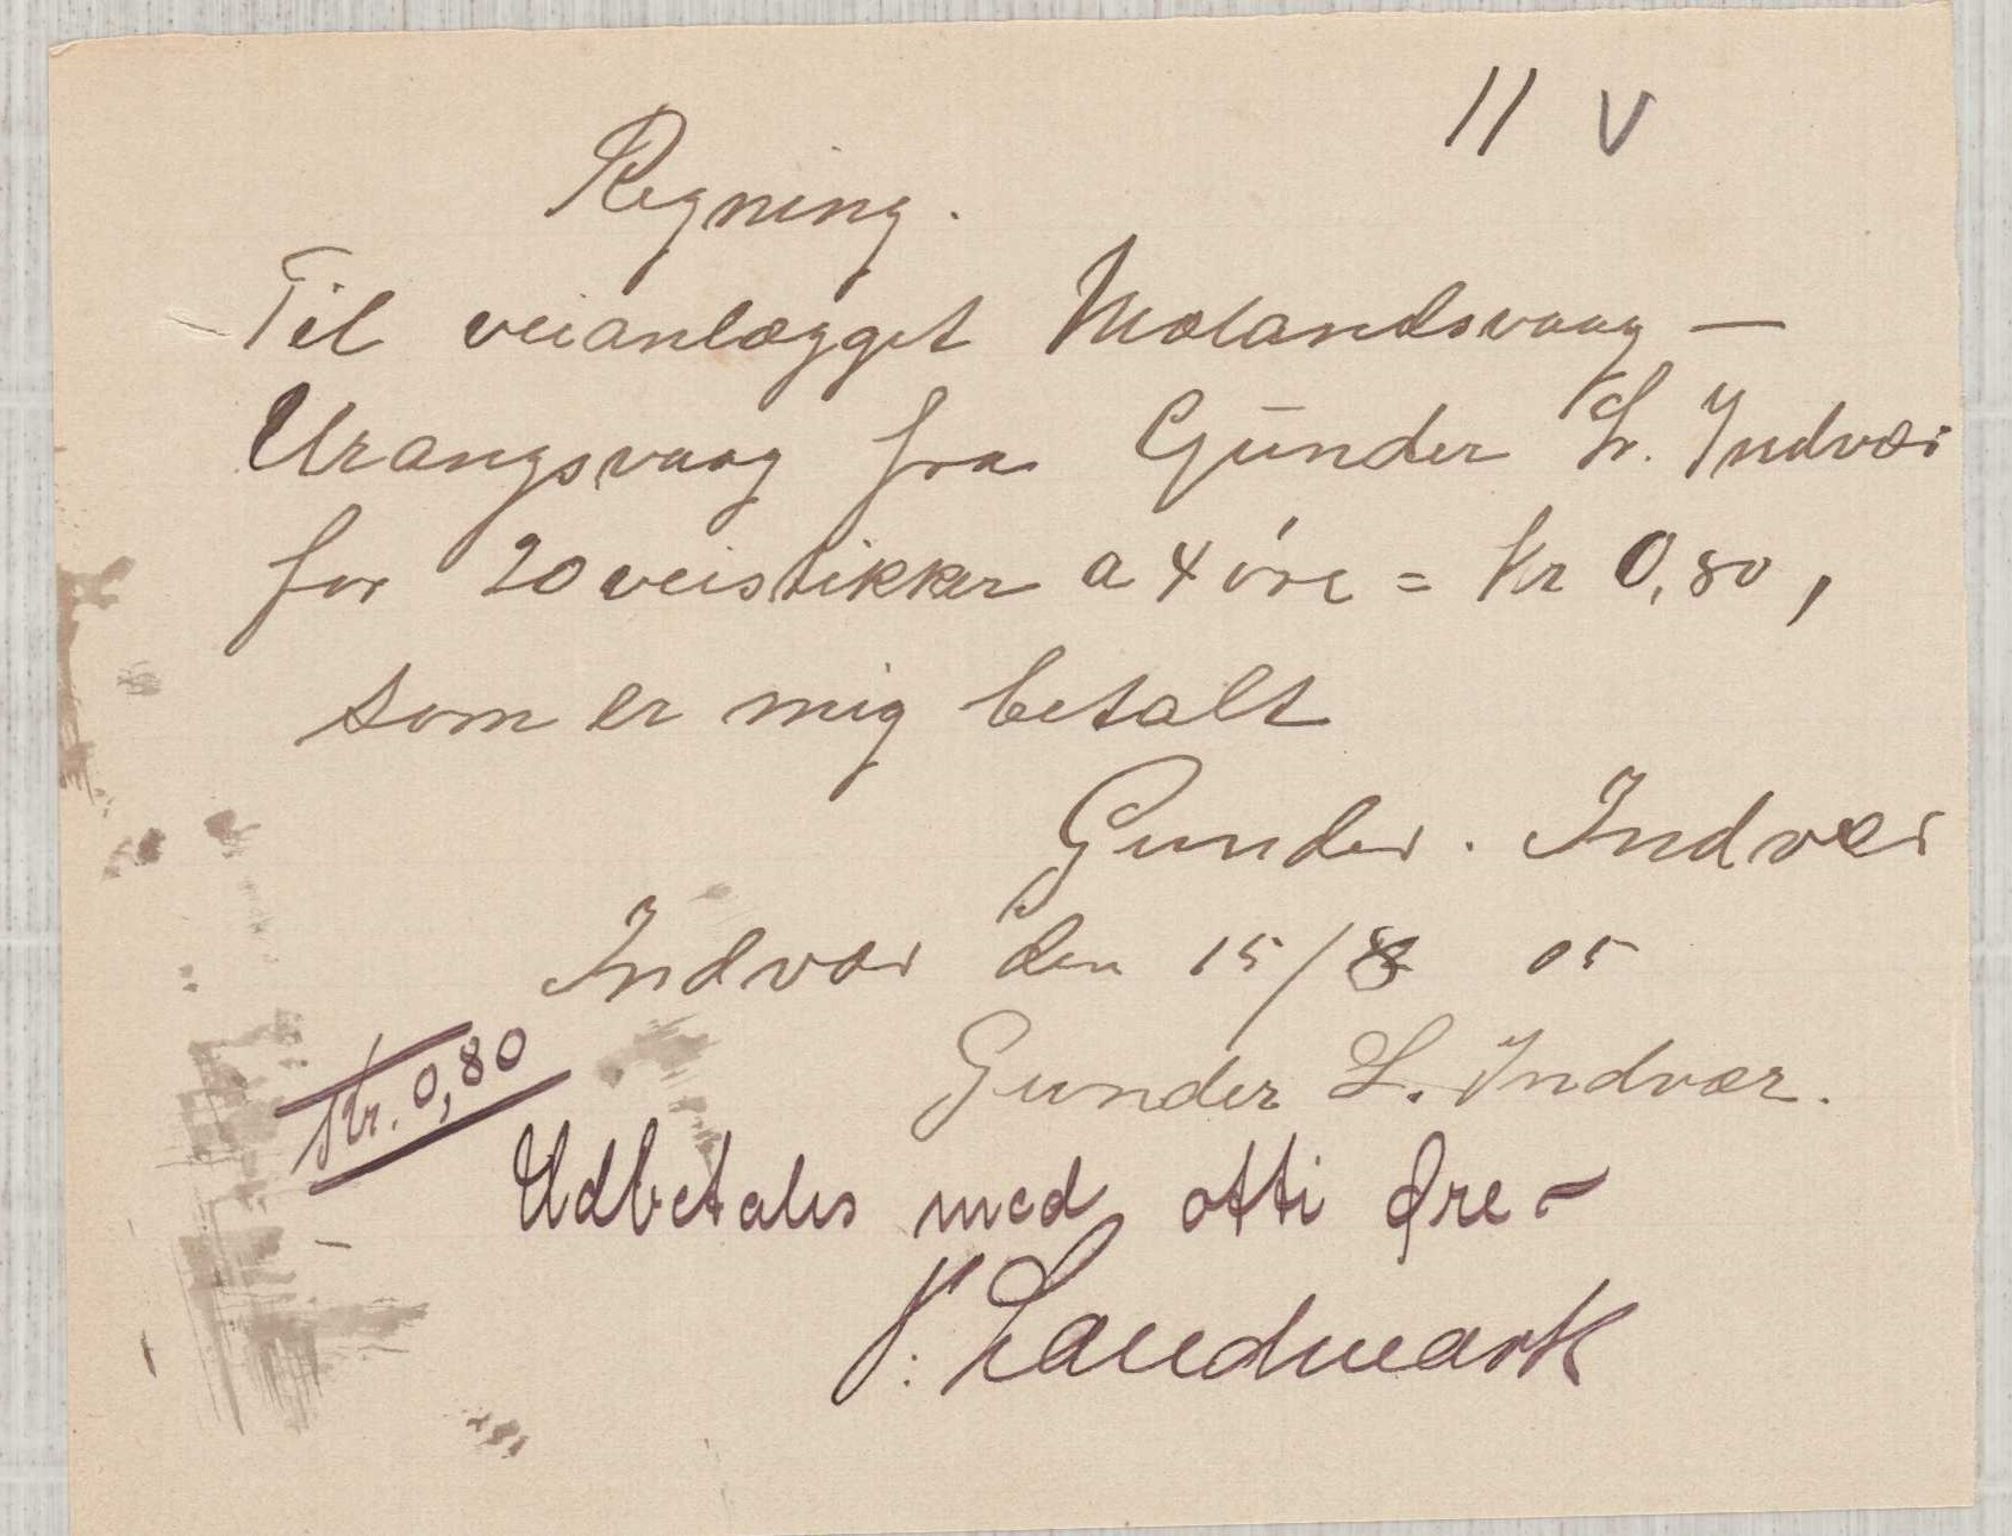 11 V
Regning.
Til veianlægget Molandsvaag —
Urangsvaag fra Gunder L. Indvær
for 20 veistikker a 4 øre = kr 0,80,
som er mig betalt
Gunder. Indvær
Indvær den 15/8 05
Gunder L. Indvær.
Kr. 0,80
Udbetales med otti øre –
N. Landmark